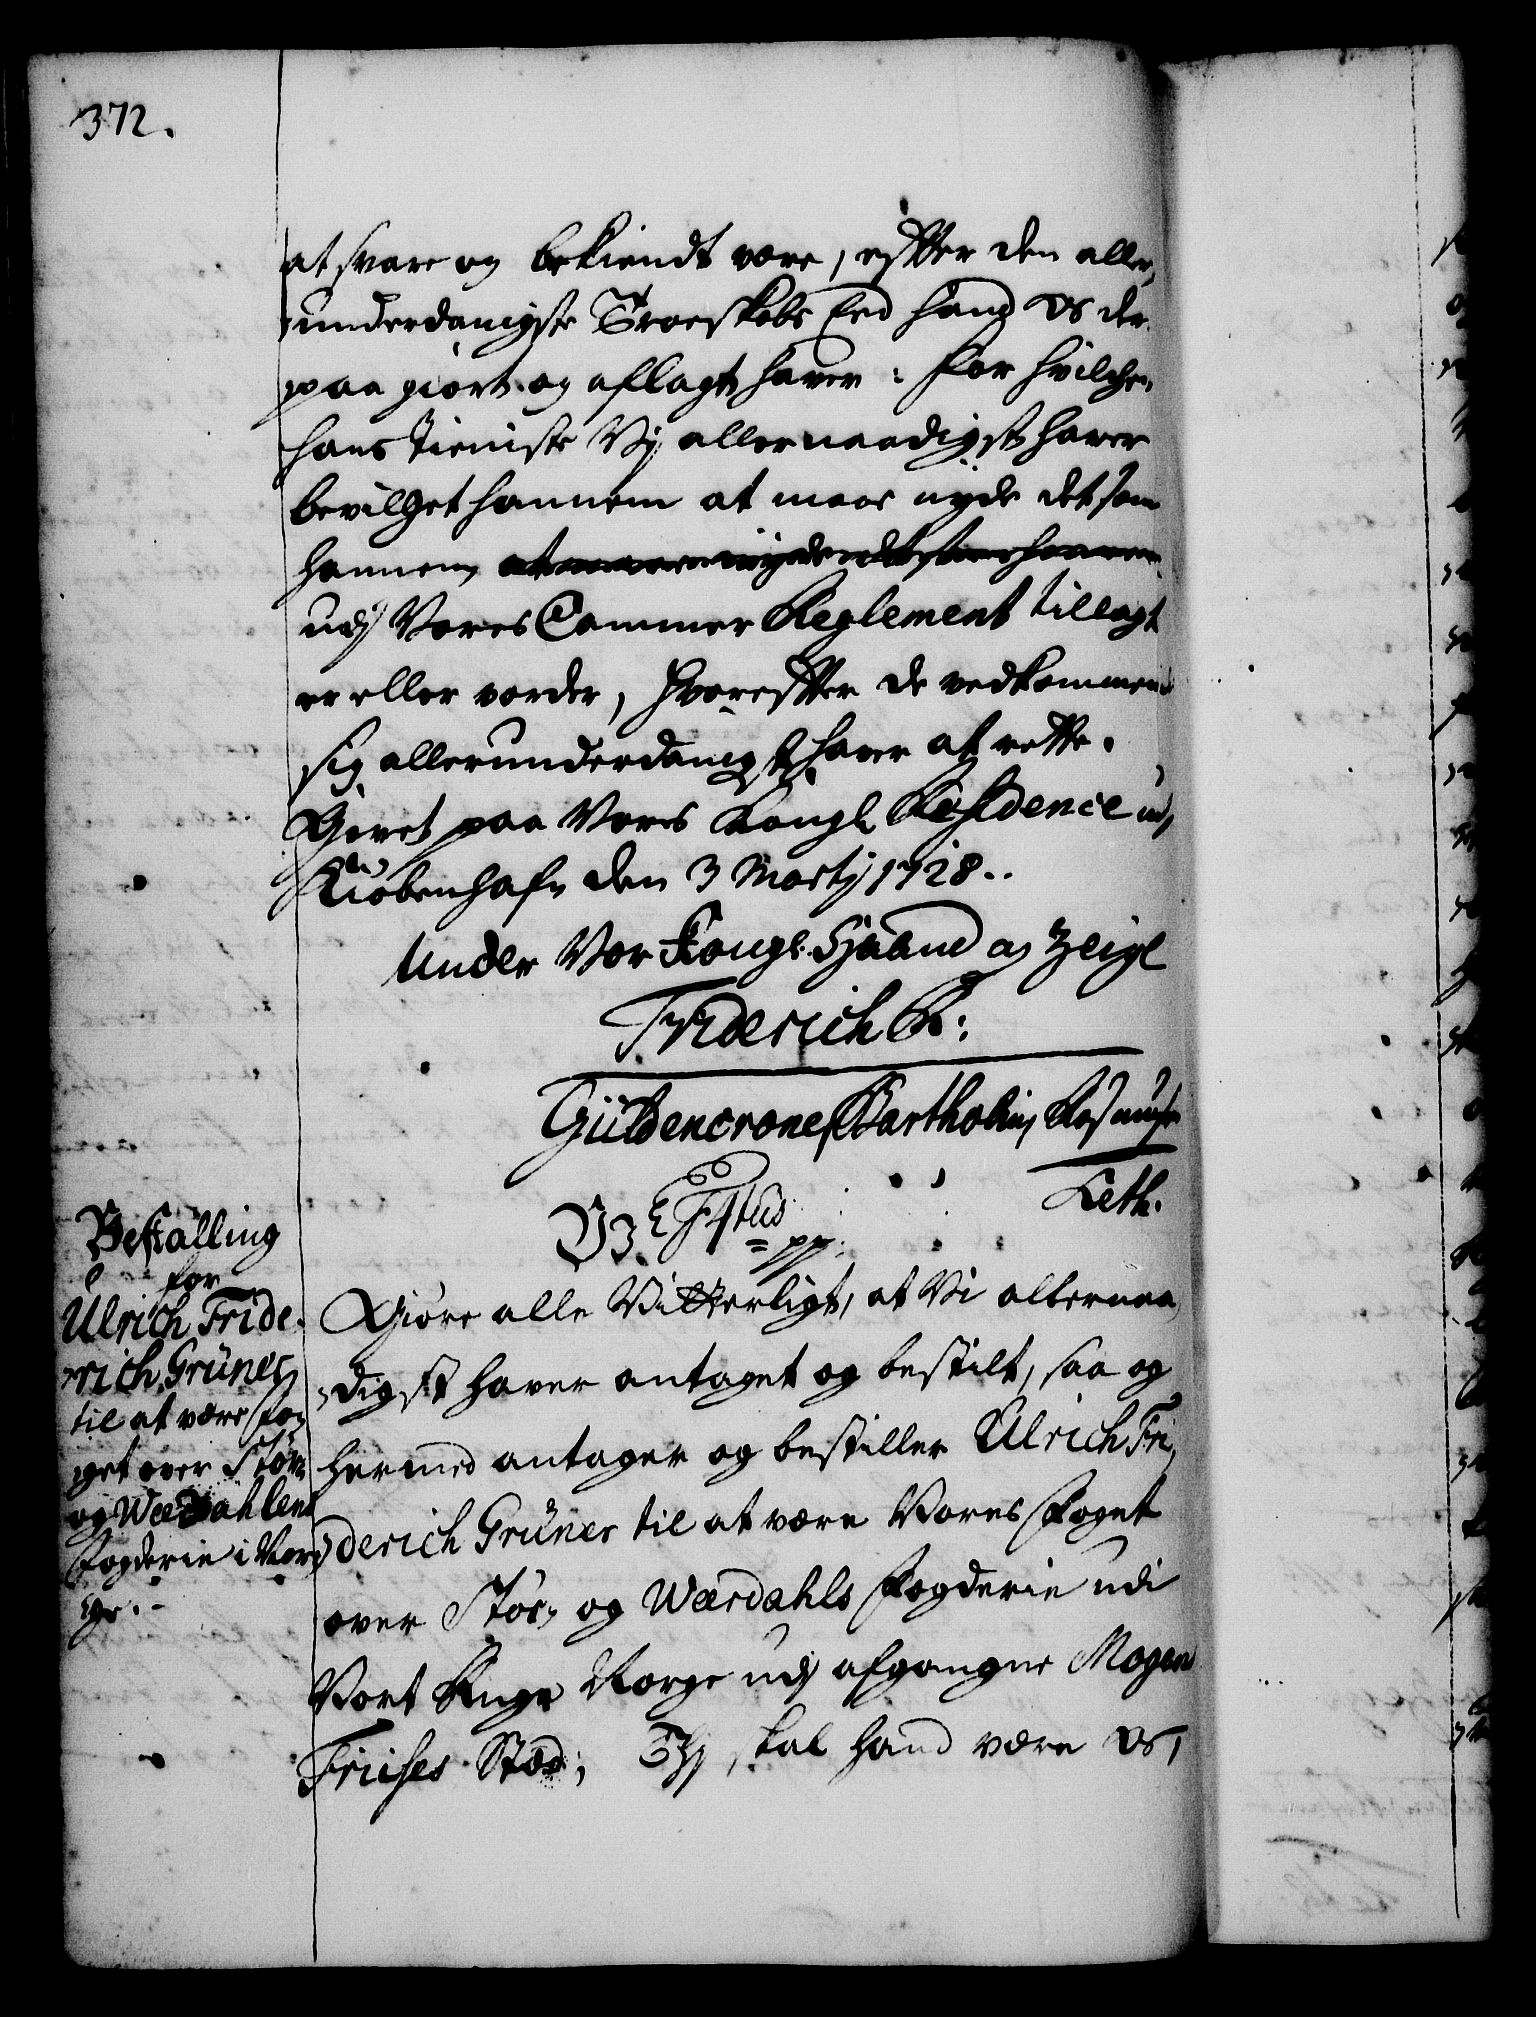 372.
at svare og bekiendt være, efter den aller,
underdanigste Troeskabs Eed hand os der,
paa giort og aflagt haver: For hvilchen
hans tieniste Vj allernaadigst haver
bevilget hannem at maae nyde det som
hannem at maae nyde det som hannem
udj Vores Cammer Reglement tillagt
er eller vorder, hvorefter de vedkommende
sig allerunderdanigst haver at rette.
Givet paa Vores Kongl Residence ud,
Kiøbenhafn den 3 Martij 1728..
Under Vor Kongl: Haand og Zeigl
Friderich R:
Güldencrone, Bartholin,
Leth.
V3. F4tus pp:
Bestalling
for
Ulrich Fride,
rich Grüner
til at være Fo,
get over Stør,
og Wærdahlens
Fogderie i Nor,
ge.-
Giøre alle Vitterligt, at Vi allernaa,
digst haver antaget og bestilt, saa og
hermed antager og bestiller Ulrich Fri,
derich Grüner til at være Vores Foget
over Stør, og Wærdahls Fogderie udi
Vort Rige Norge udj afgangne Mogen
Friises Stæd; Thj skal hand være os,